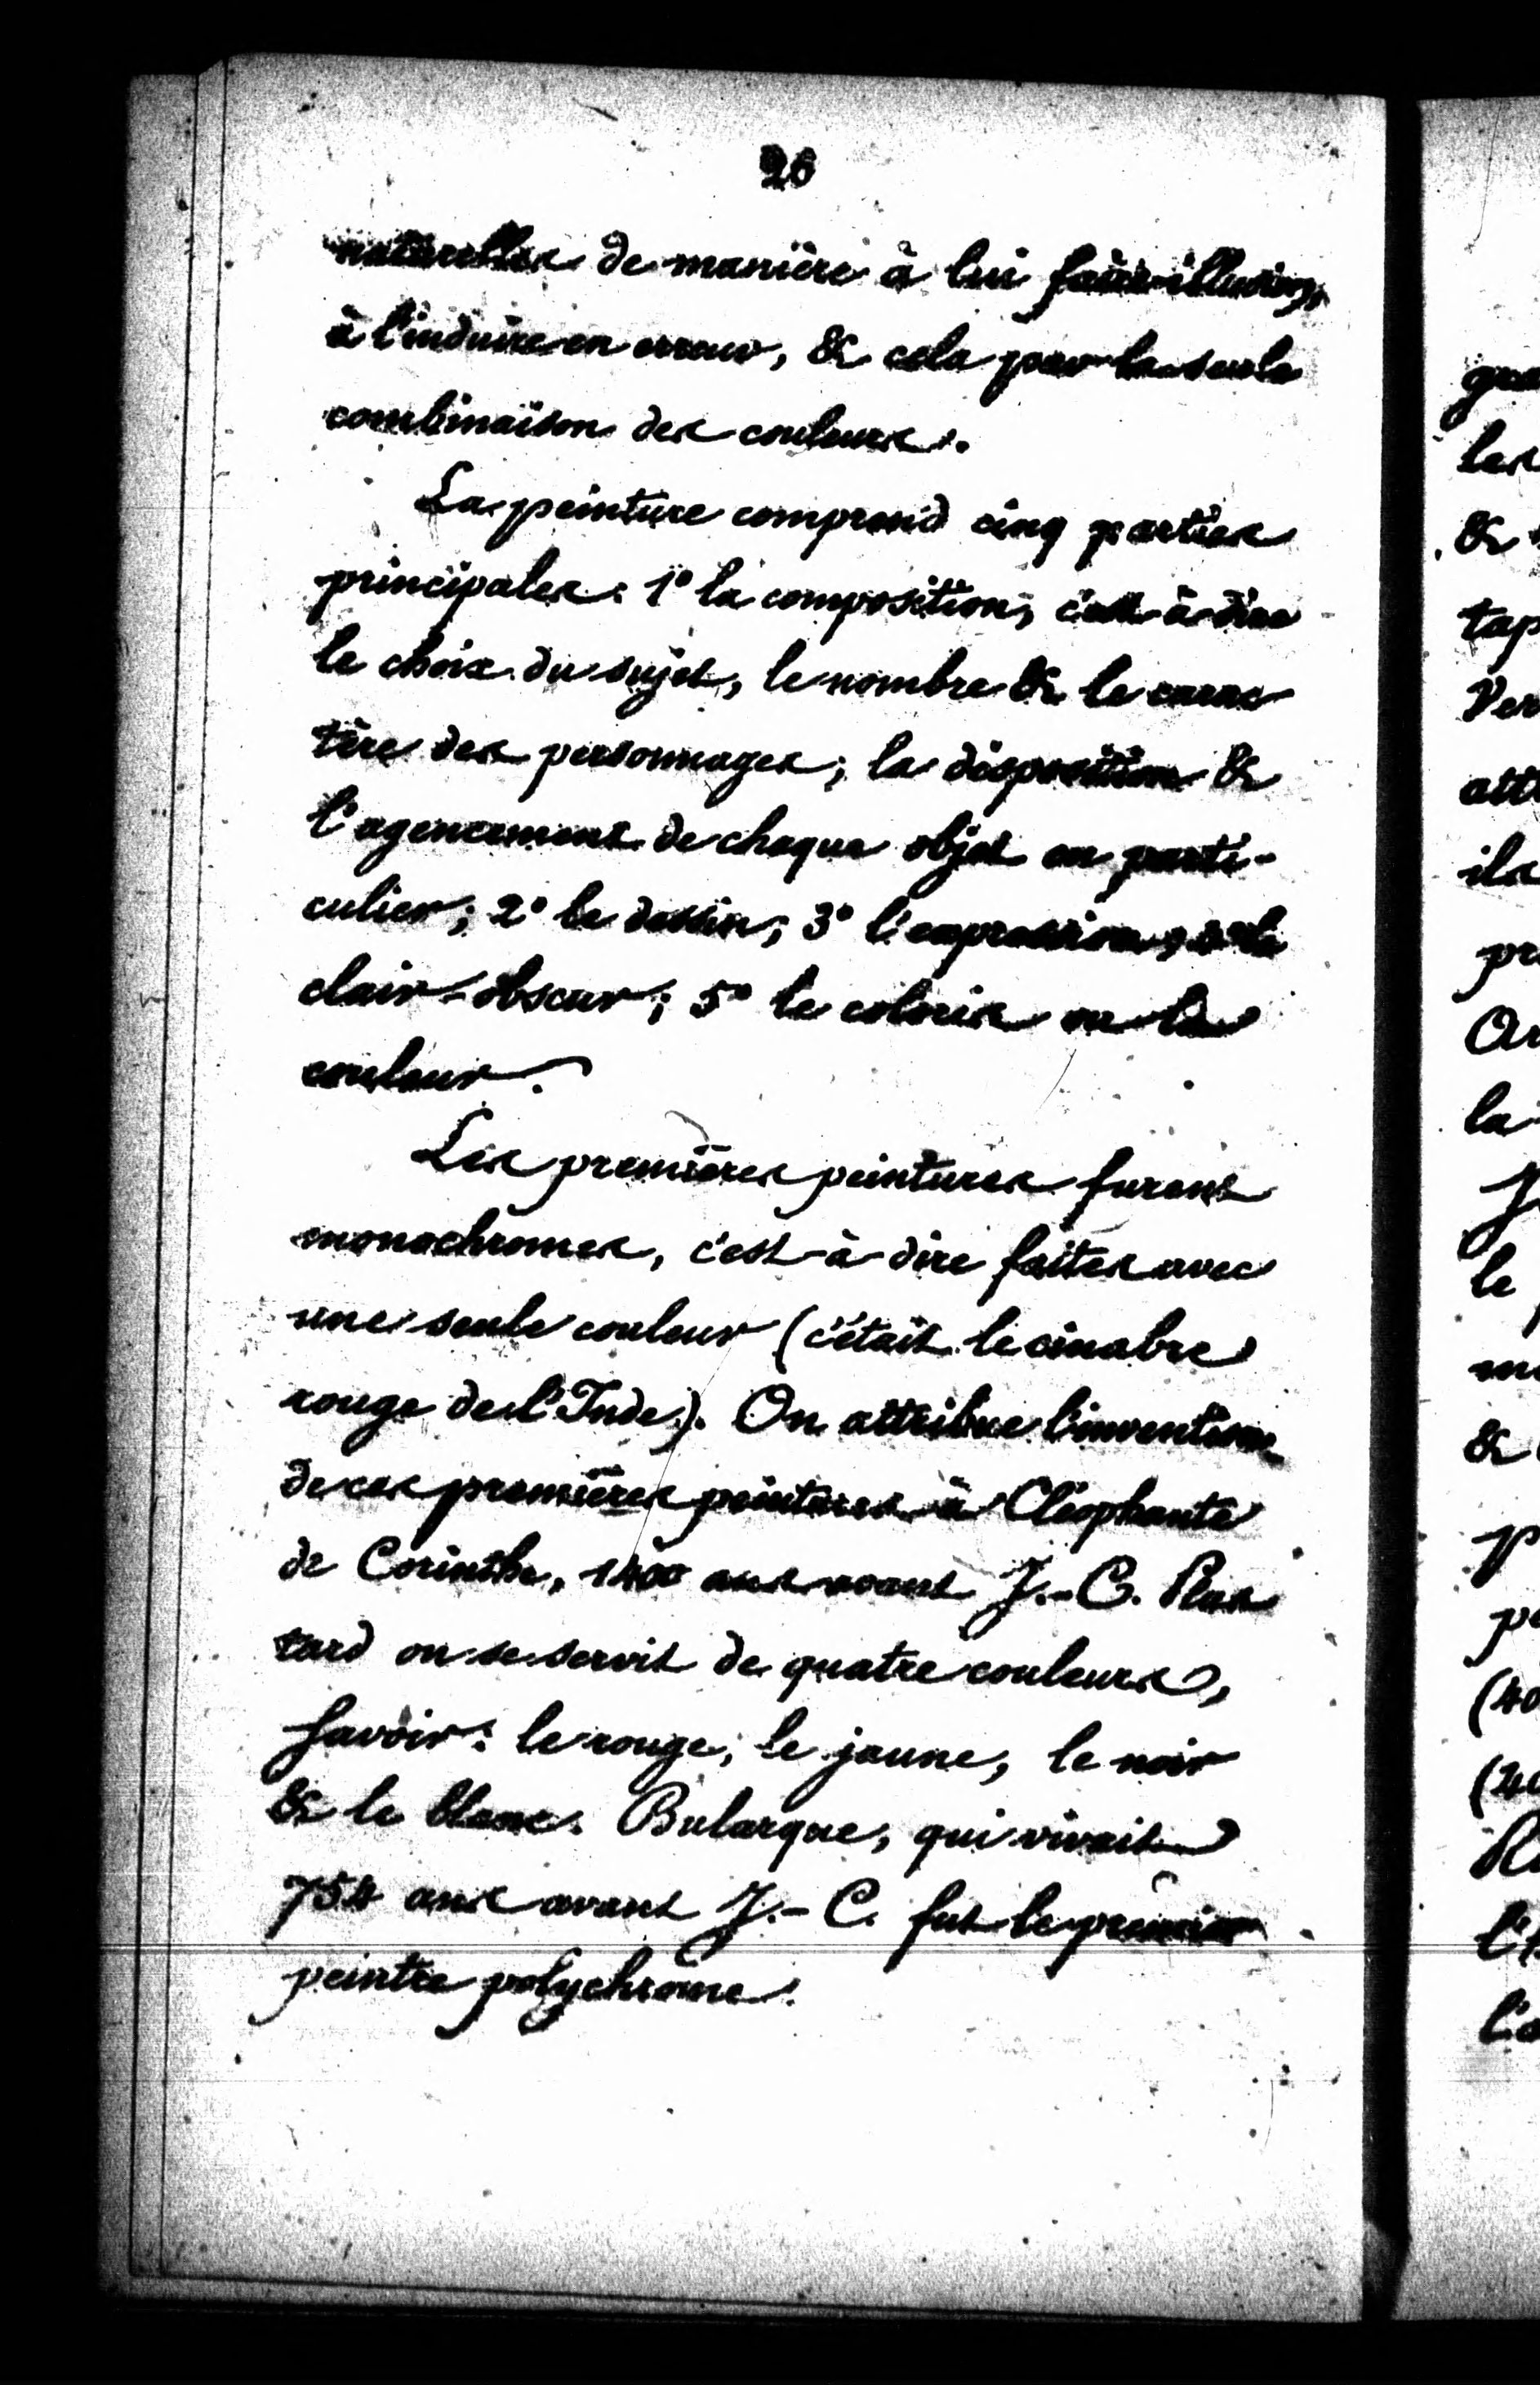 26
naturelles de manière à lui faire illusion,
à l'induire en erreur, & cela par la seule
combinaison des couleurs.
La peinture comprend cinq parties
principales: 1° la composition, c'est-à-dire
le choix du sujet, le nombre & le carac
tère des personnages; la disposition &
l'agencement de chaque objet en parti-
culier; 2° le dessin; 3° l'expression; 4° le
clair-obscur; 5° le coloris ou la
couleur.
Les premières peintures furent
monochromes, c'est-à-dire faites avec
une seule couleur (c'était le cinabre
rouge de l'Inde). On attribue l'invention
de ces premières peintures à Cléophante
de Corinthe, 1400 ans avant J.-C. Plus
tard on se servit de quatre couleurs,
savoir: le rouge, le jaune, le noir
& le blanc. Bularque, qui vivait
754 ans avant J.-C. fut le premier
peintre polychrome.
les
&
la
le
&